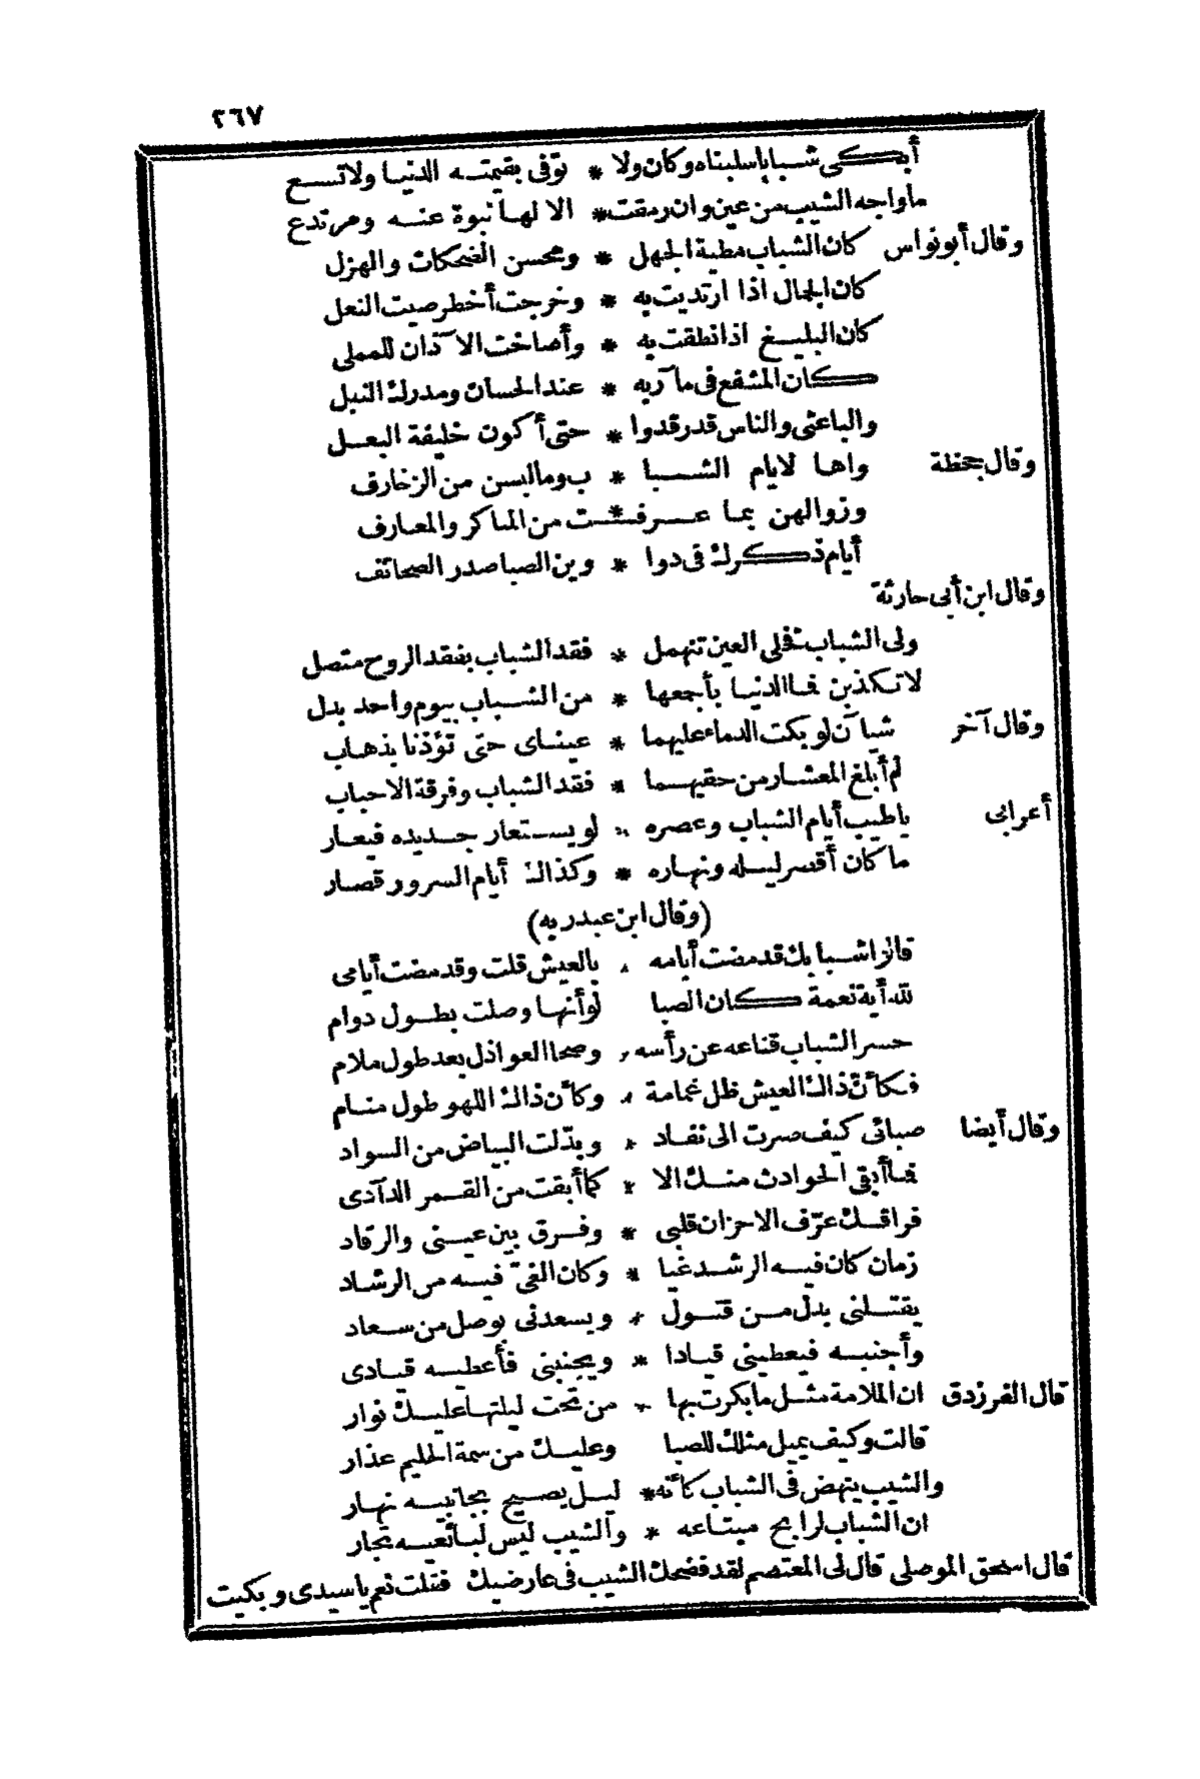 ٢٦٧
أبكى شبابا سلبناه وكان ولا * توفى بقيمته الدنيا ولا تسع
ما واجه الشيب من عين وان رمقت * الا لها نبوة عنه ومرتدع
وقال أبو نواس كان الشباب مطية الجهل * ومحسن الضحكات والهزل
كان الجمال اذا ارتديت به * وخرجت أخطر صيت النعل
كان البليغ اذا نطقت به * وأصاخت الآذان للمملى
كان المشفع فى مآربه * عند الحسان ومدرك النبل
والباعثى والناس قد رقدوا * حتى أكون خليفة البعل
وقال جحظة واها لايام الشبا * ب وما لبسن من الزخارف
وزوالهن بما عرفـ * ـت من المناكر والمعارف
أيام ذكرك فى دوا * وين الصبا صدر الصحائف
وقال ابن أبى حارثة
ولى الشباب فخلى العين تنهمل * فقد الشباب بفقد الروح متصل
لا تكذبن فما الدنيا بأجمعها * من الشباب بيوم واحد بدل
وقال آخر شيآن لو بكت الدماء عليهما * عيناى حتى تؤذنا بذهاب
لم أبلغ المعشار من حقيهما * فقد الشباب وفرقة الاحباب
أعرابى ياطيب أيام الشباب وعصره * لو يستعار جديده فيعار
ما كان أقصر ليله ونهاره * وكذاك أيام السرور قصار
(وقال ابن عبدربه)
قالوا شبابك قد مضت أيامه * بالعيش قلت وقد مضت أيامى
لله أية نعمة كان الصبا لو أنها وصلت بطول دوام
حسر الشباب قناعه عن رأسه * وصحا العواذل بعد طول ملام
فكأن ذاك العيش ظل غمامة * وكأن ذاك اللهو طول منام
وقال أيضا صبائى كيف صرت الى نفاد * وبدلت البياض من السواد
فما أبقى الحوادث منك الا * كما أبقت من القمر الدآدى
فراقك عرف الاحزان قلبى * وفرق بين عينى والرقاد
زمان كان فيه الرشد غيا * وكان الغى فيه من الرشاد
يقتلنى بدل من قتول * ويسعدنى بوصل من سعاد
وأجنبه فيعطينى قيادا * ويجنبنى فأعطيه قيادى
قال الفرزدق ان الملامة مثل ما بكرت بها * من تحت ليلتها عليك نوار
قالت وكيف يميل مثلك للصبا وعليك من سمة الحليم عذار
والشيب ينهض فى الشباب كأنه * ليل يصيح بجانبيه نهار
ان الشباب لرابح مبتاعه * والشيب ليس لبائعيه تجار
قال اسحق الموصلى قال لى المعتصم لقد فضحك الشيب فى عارضيك فقلت نعم ياسيدى وبكيت